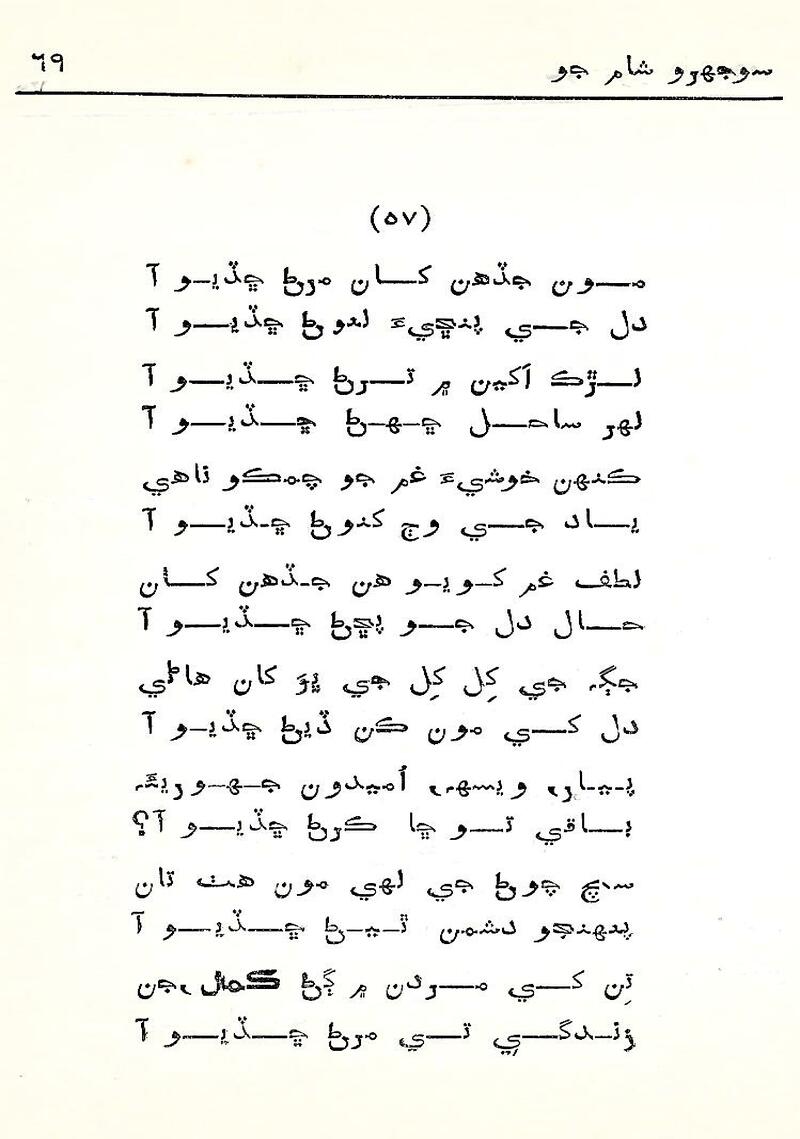 سوجهرو شام جو
٦٩
(٥٧)
مون جڏهن کان مرڻ ڇڏيو آ
دل جي پنڇيءَ لنوڻ ڇڏيو آ
لڙڪ اَکين ۾ ترڻ ڇڏيو آ
لهر ساحل ڇهڻ ڇڏيو آ
ڪنهن خوشيءَ غم جو چمڪو ناهي
ياد جي وڄ کنوڻ ڇڏيو آ
لطف غم کويو هن جڏهن کان
حال دل جو پڇڻ ڇڏيو آ
جڳهه جي کِل کِل جي ڀوَ کان هاڻي
دل کي مون ڪن ڏيڻ ڇڏيو آ
پيار، ويسهه، اُميدون جهوريئه
باقي تو ڇا ڪرڻ ڇڏيو آ؟
سچ چوڻ جي لهي مون هٿ تان
پنهنجو دشمن ٿيڻ ڇڏيو آ
تِن کي مردن ۾ ڳڻ ڪمال، جن
زندگيِ تي مرڻ ڇڏيو آ